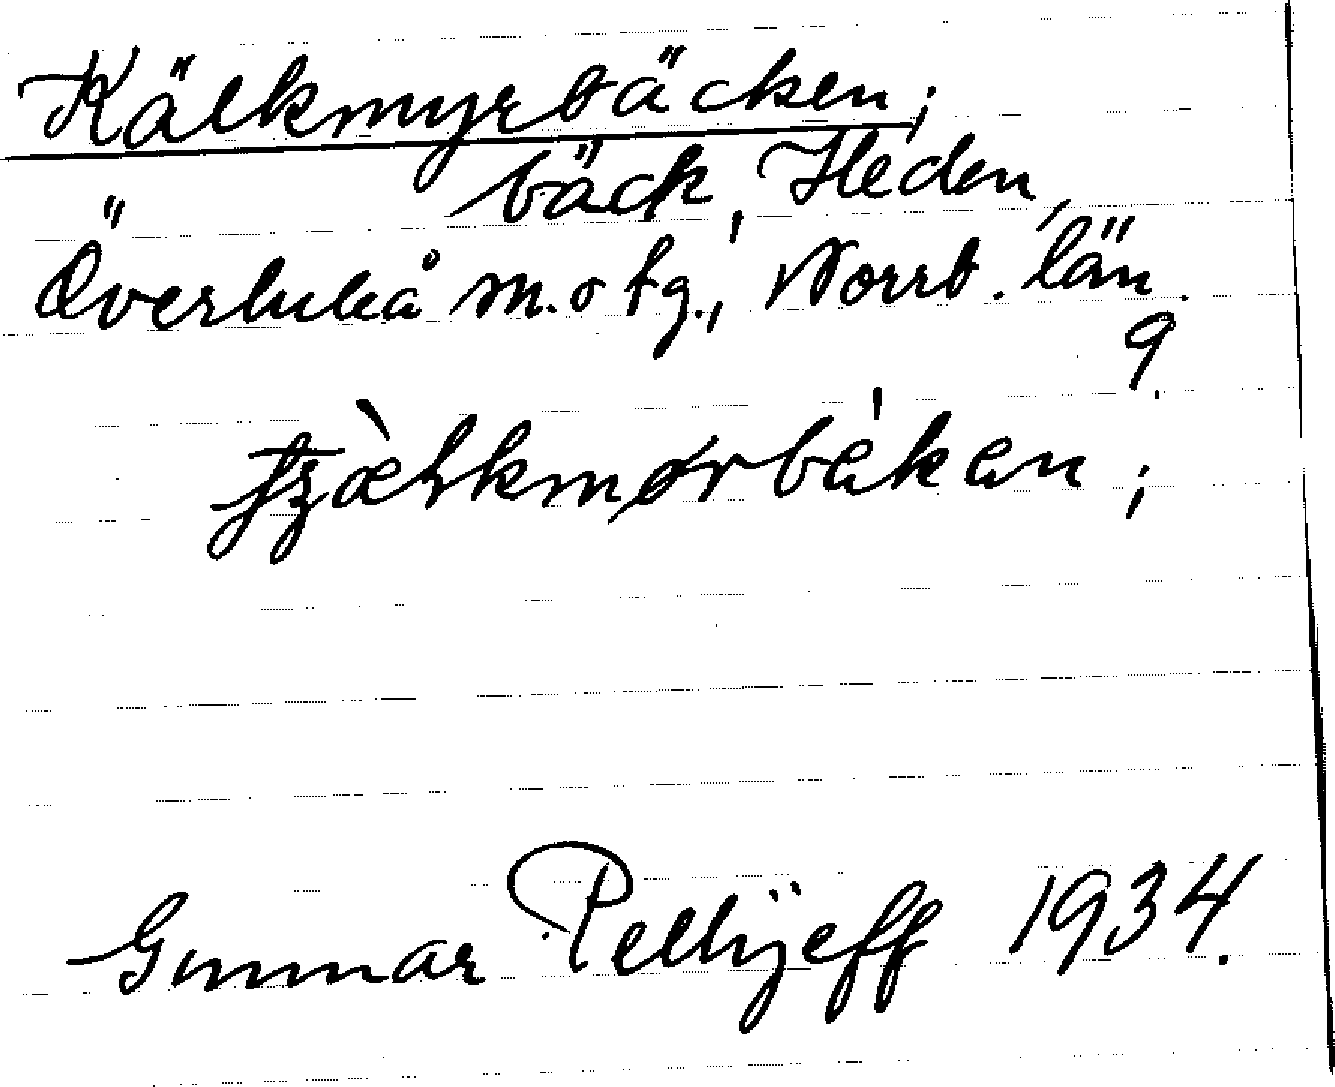 Kälkmyrbäcken;
bäck, Heden,
Överluleå m. o tg., Norrb. län.
9.
Gunnar Pellijeff 1934.